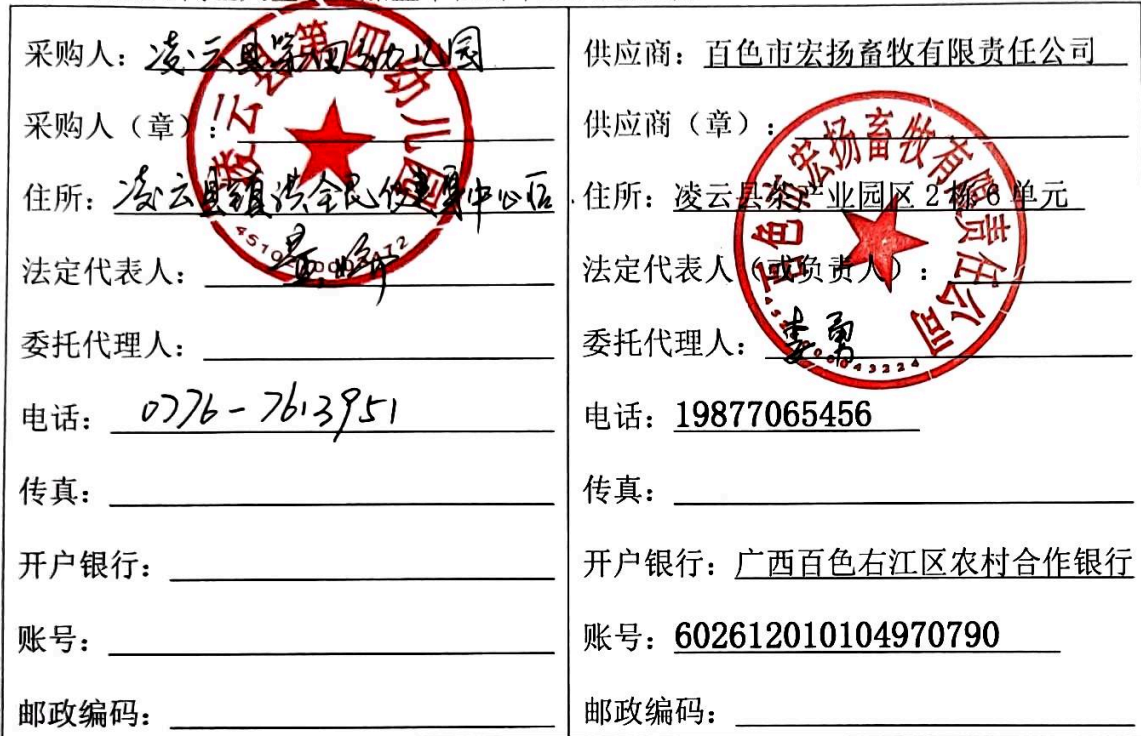 采购人：凌云县第四幼儿园
采购人（章）：
住所：凌云县镇洪全民健身中心后
法定代表人：
委托代理人：
电话：0776-7613951
传真：
开户银行：
账号：
邮政编码：
凌云县第四幼儿园
供应商：百色市宏扬畜牧有限责任公司
供应商（章）：
住所：凌云县茶产业园区2栋6单元
法定代表人（或负责人）：
委托代理人：李勇
电话：19877065456
传真：
开户银行：广西百色右江区农村合作银行
账号：602612010104970790
邮政编码：
百色市宏扬畜牧有限责任公司